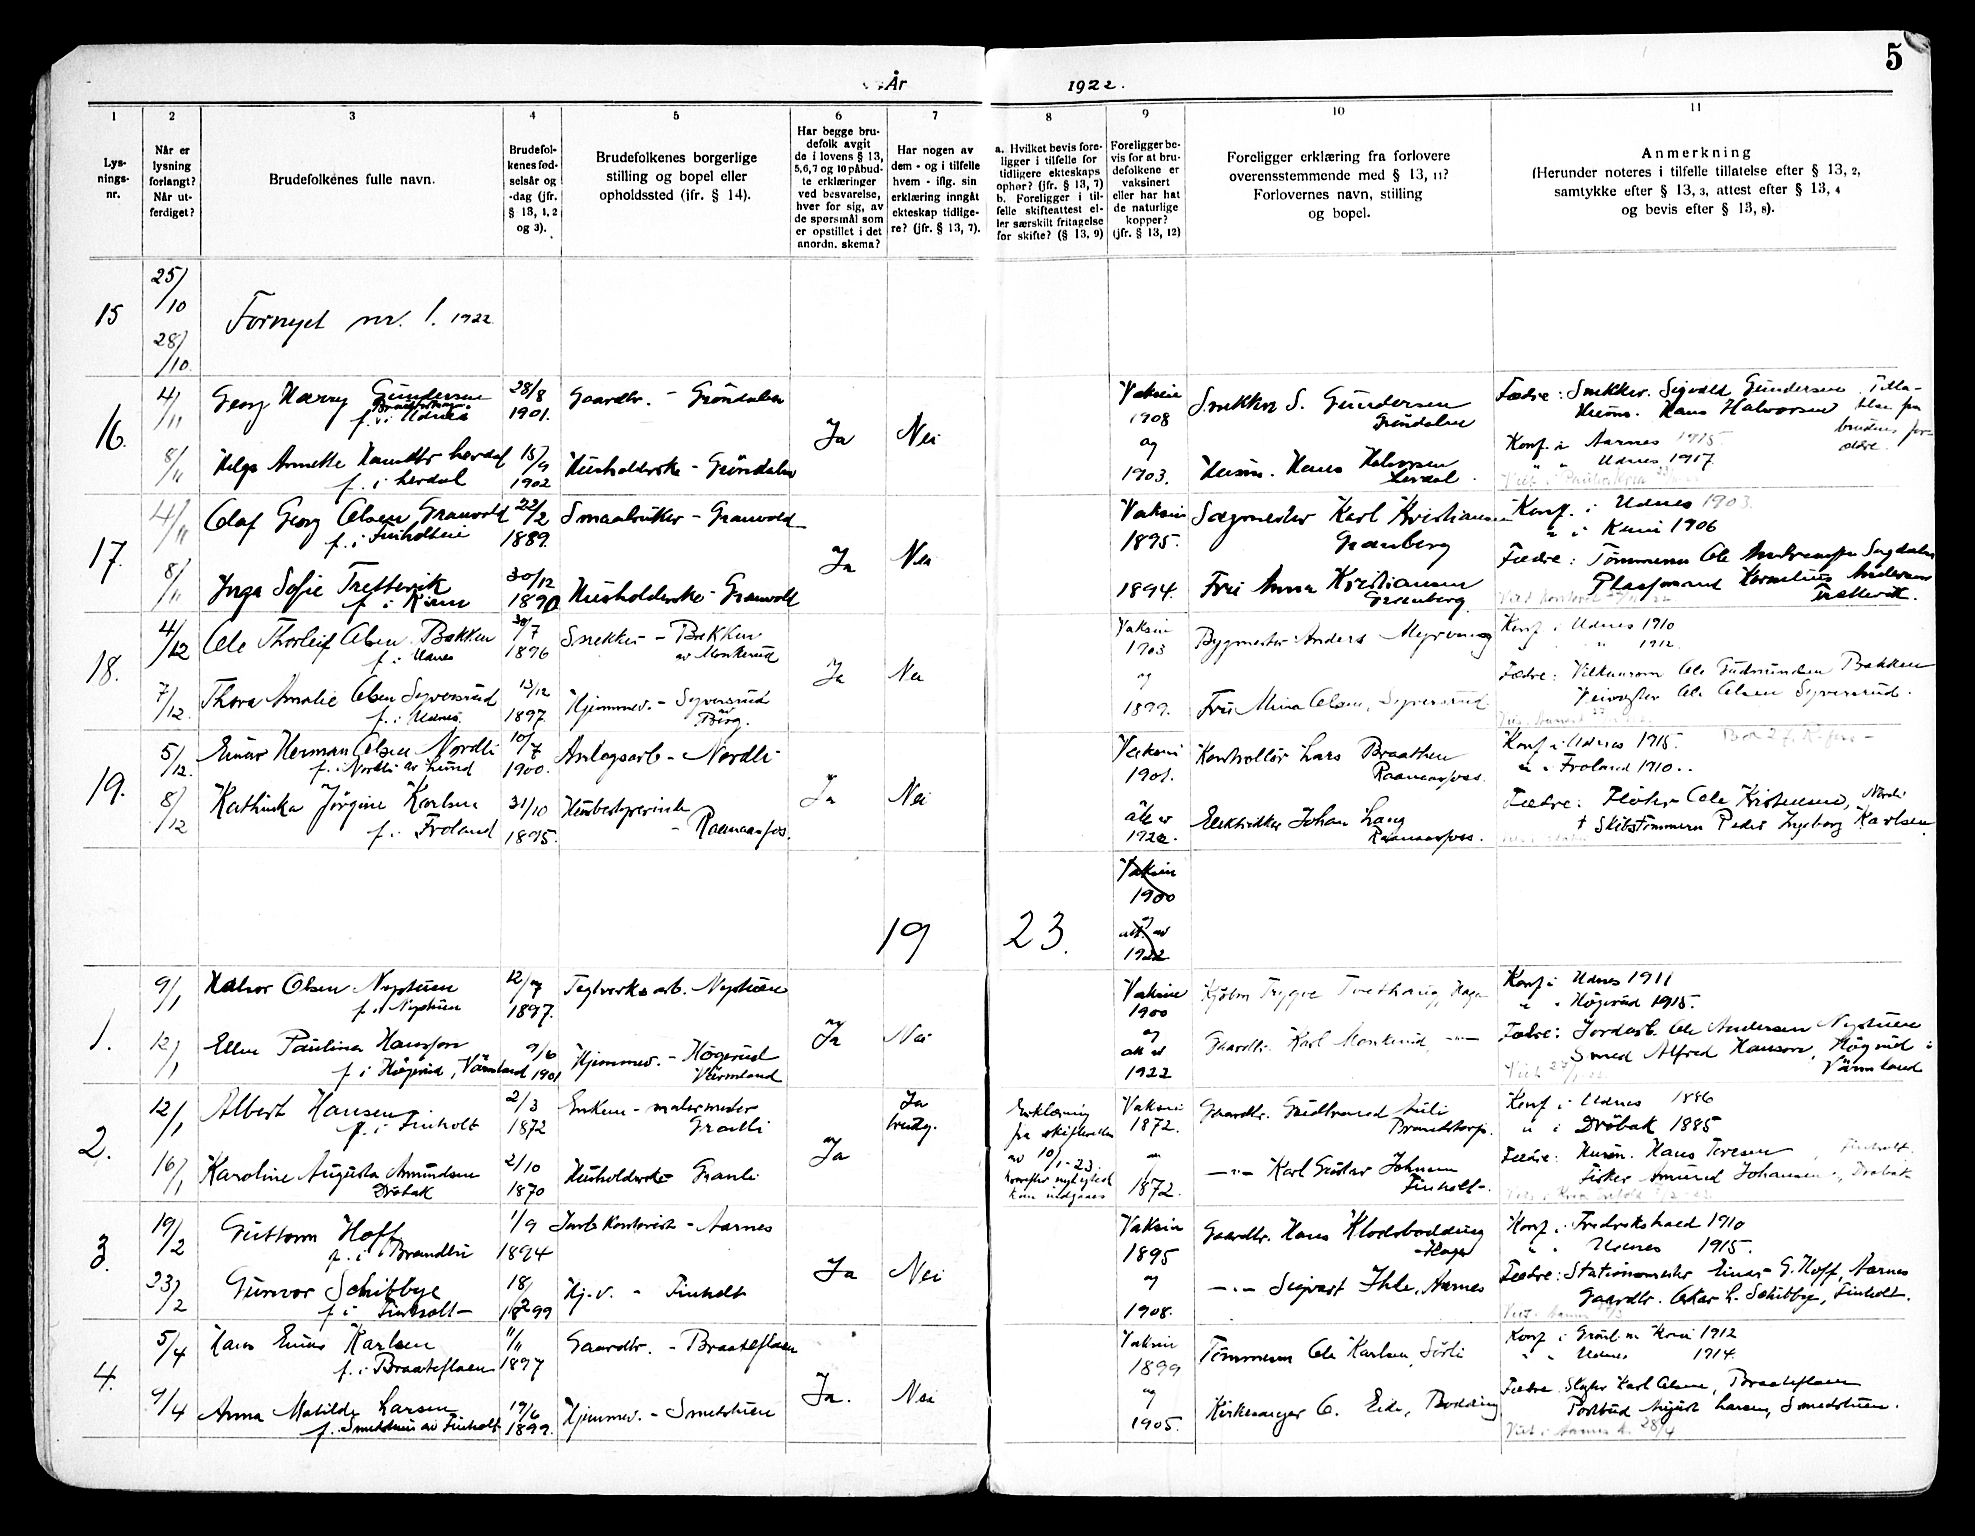 5
År 1922.
1
2
3
4
5
6
7
8
9
10
11
Lys-
nings-
nr.
Når er
lysning
forlangt?
Når ut-
ferdiget?
Brudefolkenes fulle navn.
Brudefol-
kenes fød-
selsår og
-dag (jfr.
§ 13, 1, 2
og 3).
Brudefolkenes borgerlige
stilling og bopel eller
opholdssted (jfr. § 14).
Har begge bru-
defolk avgit
de i lovens § 13,
5,6,7 og 10 påbud-
te erklæringer
ved besvarelse,
hver for sig, av
de spørsmål som
er opstillet i det
anordn. skema?
Har nogen av
dem - og i tilfelle
hvem - iflg. sin
erklæring inngått
ekteskap tidlige-
re? (jfr. § 13, 7).
a. Hvilket bevis fore-
ligger i tilfelle for
tidligere ekteskaps
ophør? (jfr. § 13, 7)
b. Foreligger i til-
felle skifteattest el-
ler særskilt fritagelse
for skifte? (§ 13, 9)
Foreligger be-
vis for at bru-
defolkene er
vaksinert
eller har hat
de naturlige
kopper?
(jfr. § 13, 12)
Foreligger erklæring fra forlovere
overensstemmende med § 13, 11?
Forlovernes navn, stilling
og bopel.
Anmerkning
(Herunder noteres i tilfelle tillatelse efter § 13, 2,
samtykke efter § 13, 3, attest efter § 13, 4
og bevis efter § 13, 8).
15
25/10
28/10
Fornyet nr. 1. 1922
16.
4/11
8/11
Georg Harry Gundersen
f. i Udnes
28/8
1901.
Gaardbr. - Grøndalen
Helga Annette Hansdtr Lerdal
f. i Lerdal
15/9
1902
Husholderske - Grøndalen
Ja
Nei
Vaksin
1908
og
1903.
Snekker S. Gundersen
Grøndalen
Husm. Hans Halvorsen
Lerdal.
Fædre: Snekker. Sigvald Gundersen
Husm. Hans Halvorsen
Tilla-
telse fra
brudens for-
ældre.
Konf. i Aarnes 1915
" " Udnes 1917.
17.
4/11
8/11
Olaf Georg Olsen Granvold
f. i Finholteie
22/2
1889.
Smaabruker - Granvold
Inga Sofie Tretterik
f. i
30/12
1890
Husholderske - Granvold
Ja
Nei
Vaksin
1895.
1894.
Sagmester Karl Kristiansen
Granberg
Fru Anna Kristiansen
Granberg.
Konf. i Udnes 1903.
" i 1906
Fædre: Tømmerm Ole
Plassmand Kornelius Andersen
Tretterik.
18.
4/12
7/12
Ole Thorleif Olsen Bakken
f. i Udnes
30/7
1896
Snekker - Bakken
av Monkerud
Thora Amalie Olsen Syversrud
f. i Udnes.
13/12
1897.
Hjemmev. - Syversrud
av Berg.
Ja
Nei
Vaksin
1903
og
1899.
Bygmester Anders Myrvang
Fru Mina Olsen, Syversrud
Konf. i Udnes 1910
" " 1912.
Fædre: Ole Gudmundsen Bakken
Veivogter Ole Olsen Syversrud.
19.
5/12.
8/12
Einar Herman Olsen Nordli
f. i Nordli av Lund
10/7
1900.
Anlagsarb - Nordli
Kathinka Jørgine Karlsen
f. i Froland
31/10
1895.
Husbestyrerinde
- Raanaasfos.
Ja
Nei
Vaksin
1901.
1922.
Kontrollør Lars Braathen
Raanaasfoss.
Elektriker Johan Lang
Raanaasfoss.
Konf i Udnes 1915.
" " Froland 1910..
Fædre: Fløter Ole Kristensen, Nordli
† Skibstømmerm Peder Ingeborg Karlsen
Vaksin
1900
og
1922
19
23.
1.
9/1
12/1
Halvor Olsen Nystuen
f. i Nystuen
12/7
1897.
Teglverksarb. Nystuen
Ellen Paulina Hansson
f. i Högerud, Värmland
9/6
1901
Hjemmev. - Högerud
Värmland
Ja
Nei
Vaksin
1900
og
1922
Trygve Tvethaug, Haga
Gaardbr. Karl Monkerud -"-
Konf i Udnes 1911
" " Högerud 1915.
Fædre: Jordarb. Ole Andersen Nystuen
Smed Alfred Hansson, Högerud i
Värmland
2.
12/1
16/1
Albert Hansen
f. i Finholt
2/3
1872
Enkem - malermester
Granli
Karoline Augusta Amundsen
Drøbak
2/10
1870
Husholderske Granli
Ja
Ja
brudg.
Erklæring
fra skifteretten
av 10/1-23
Vaksin
1872.
1872.
Gaardbr. Gudbrand Juli
Brandstorp.
-"- Karl Gustav Johnsen
Finholt.
Konf i Udnes 1886
" i Drøbak 1885
Fædre: Husm. Hans Toresen, Finholt.
Fisker Amund Johansen, Drøbak
3.
19/2
23/2
Guttorm Hoff
f. i Brandbu
1/9
1894
Jernb. Kontorist - Aarnes
Gunvor Schibbye
f. i Finholt
18/2
1899
Hj.v. - Finholt
Ja
Nei
Vaksin
1895
og
1908.
Gaardbr. Hans Klodsbodding
Haga
-"- Sigvart Ihle, Aarnes
Konf. i Fredrikshald 1910
" " Udenes 1915.
Fædre: Stationsmester Einar G. Hoff, Aarnes
Gaardbr. Oskar L. Schibbye, Finholt.
4.
5/4
9/4
Hans Einar Karlsen
f. i Braateflaen
11/11
1897
Gaardbr. - Braateflaen
Anna Matilde Larsen
f. Smedstuen av Finholt
19/6
1899.
Hjemmev. - Smedstuen
Ja.
Nei
Vaksin
1899
og
1905.
Tømmerm Ole Karlsen, Sørli
Kirkesanger O. Eide, Bodding
Konf i 1912
" " Udnes 1914.
Fædre Karl Olsen, Braateflaen
Postbud August Larsen, Smedstuen.
28/4